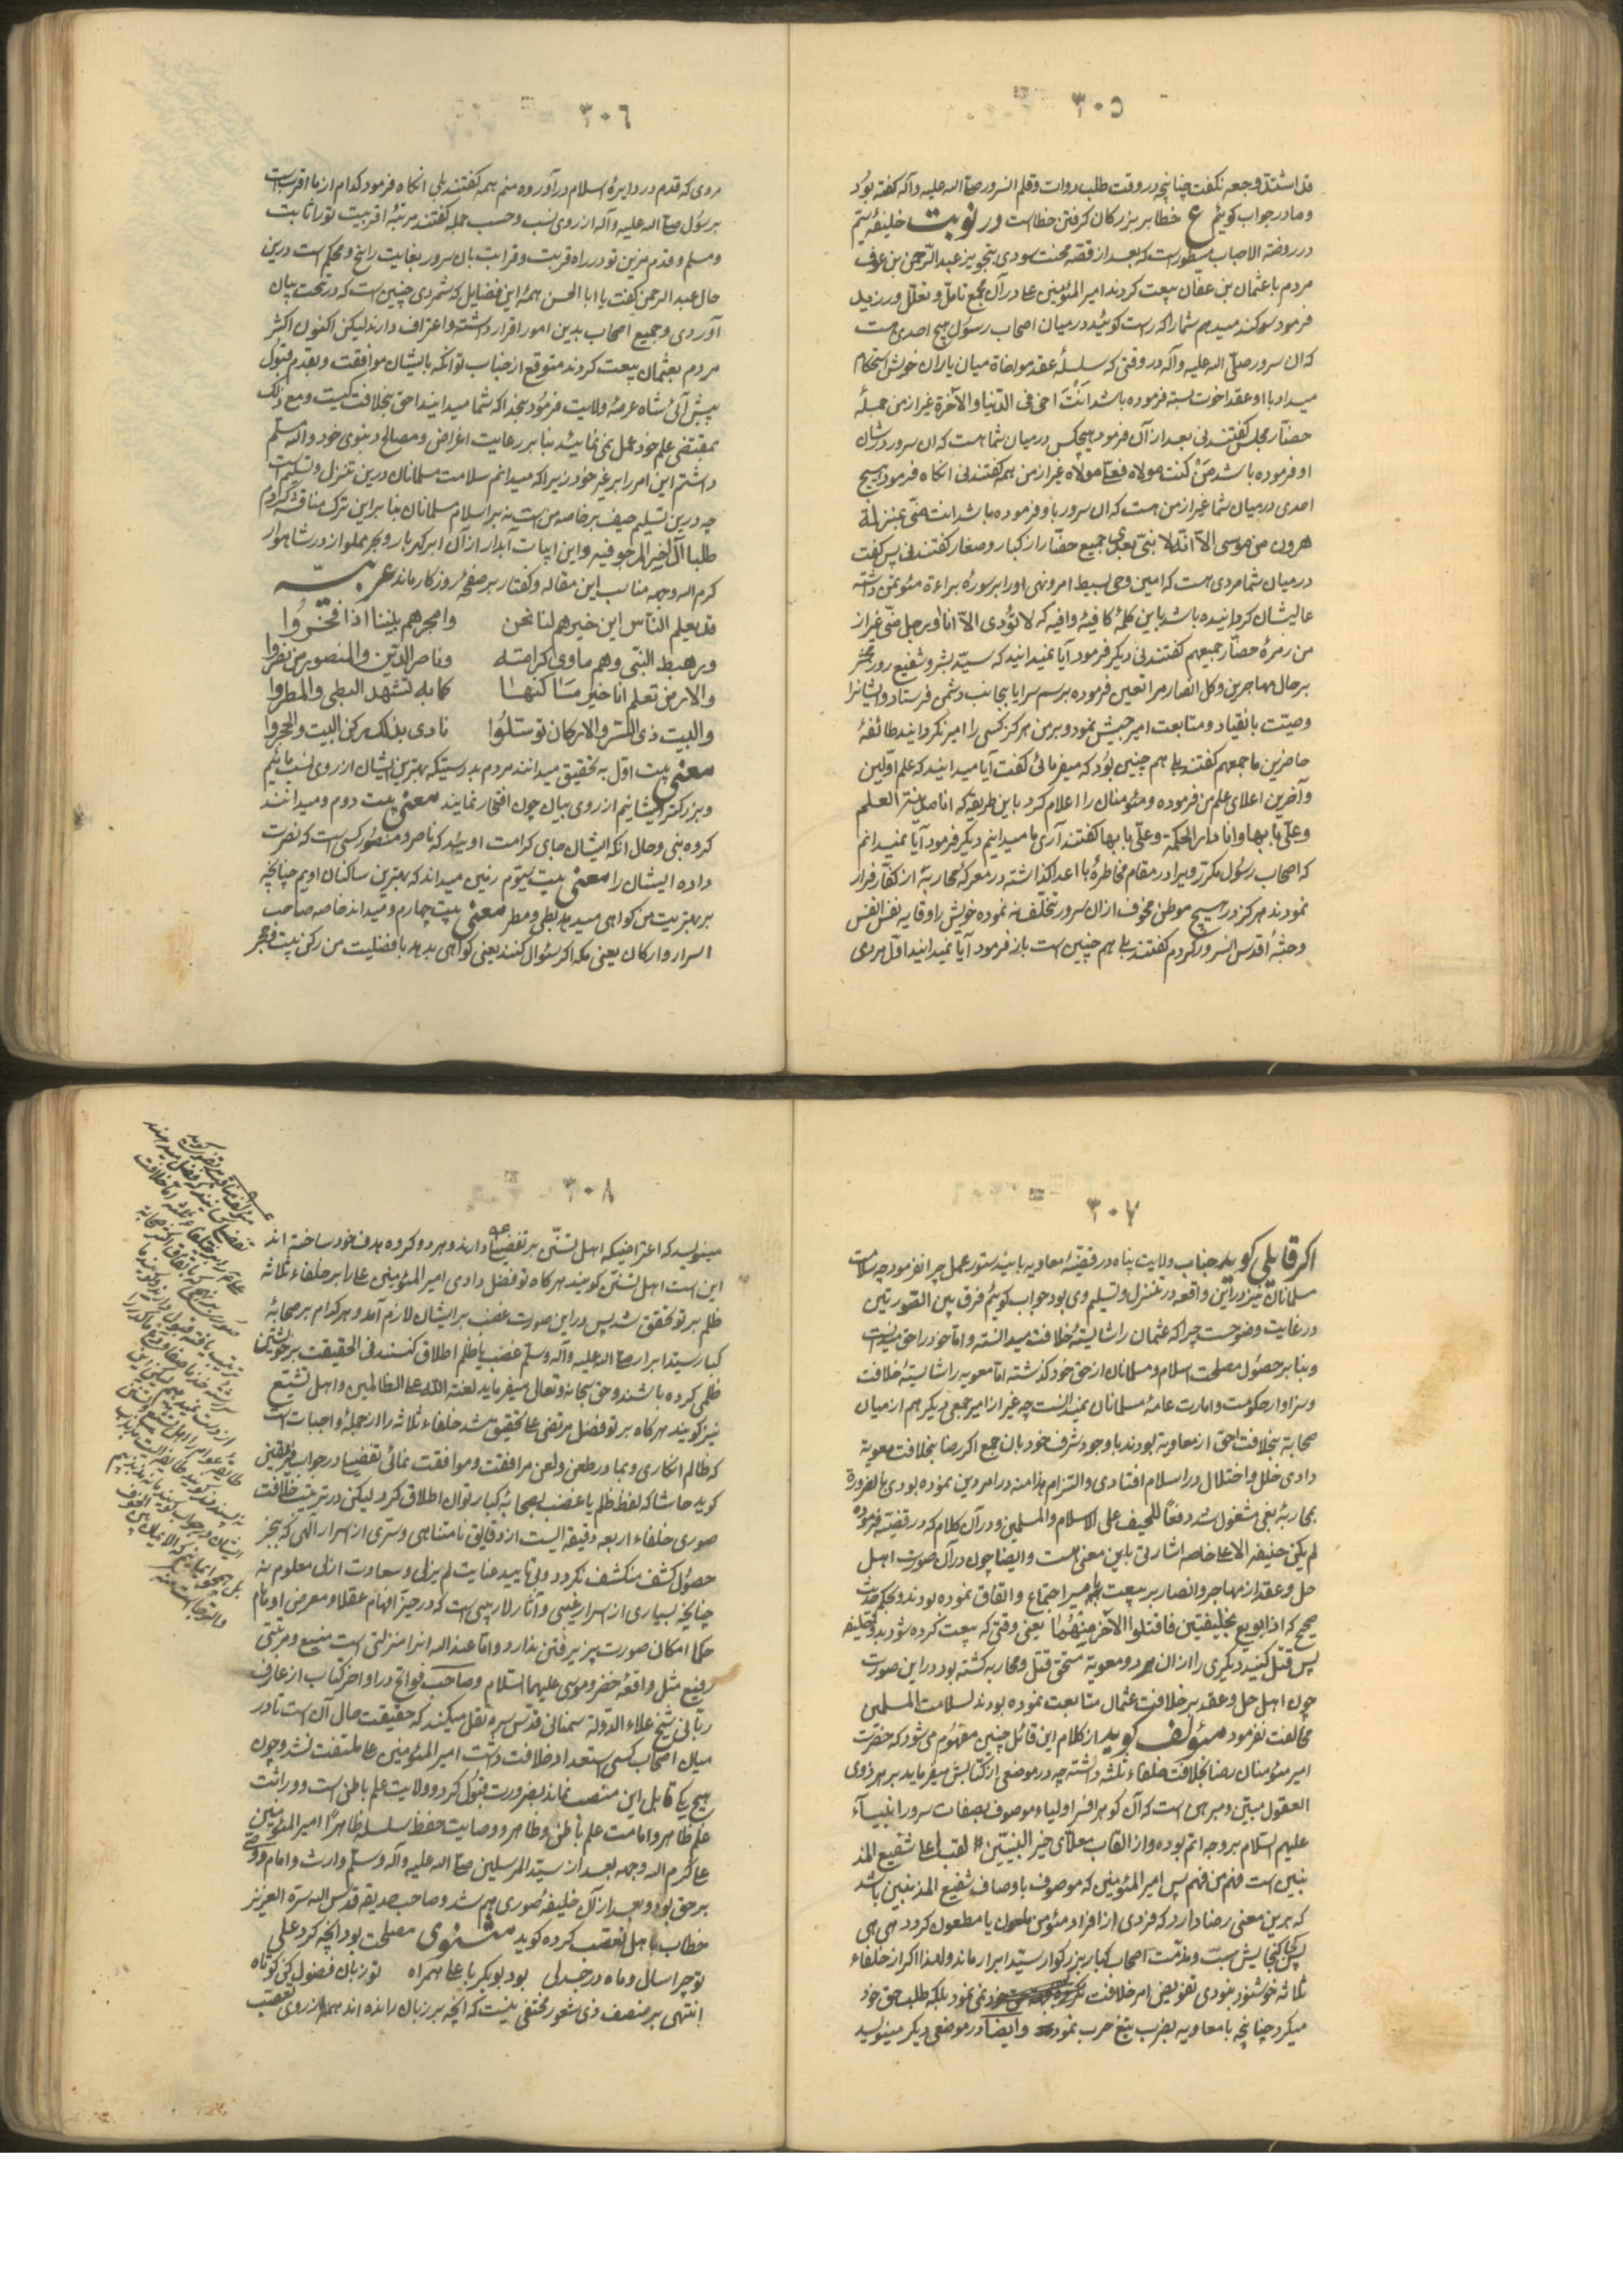 ٣٠٥
قد اشتدّ وجعه نکفت چنانچه در وقت طلب دوات و قلم انسرور صلی الله علیه و آله کفته بود
و ما در جواب کوئیم ع خطا بر بزرکان کرفتن خطاست در نوبت خلیفهٔ سیّم
در روضة الاحباب مسطور است که بعد از قصّه محنت سودی بتجویز عبد الرّحمن بن عوف
مردم با عثمان بن عفّان بیعت کردند امیر المؤمنین علی در آن مجمع تامّل و تعلّل ورزید
فرمود سوکند میدهم شما را که راست کوئید در میان اصحاب رسول هیچ احدی هست
که ان سرور صلّی الله علیه و آله در وقتی که سلسلهٔ عقد مواخاة میان یاران خویش استحکام
میداد با او عقد اخوت بسته فرموده باشد اَنْتَ اخی فی الدّنیا والآخرة غیر از من جملهٔ
حضّار مجلس کفتند نی بعد از آن فرمود هیچکس در میان شما هست که ان سرور در شان
او فرموده باشد مَنْ کنت مولاه فعلیّ مولاه غیر از من همه کفتند نی انکاه فرمود هیچ
احدی در میان شما غیر از من هست که ان سرور با و فرموده باشد انت منّی بمنزلة
هرون من موسی الاّ انّه لا نبیّ بعدی جمیع حضّار از کبار و صغار کفتند نی پس کفت
در میان شما مردی هست که امین وحی بسیط امر و نهی او را بر سورهٔ براءة مؤتمن داشته
عالیشان کردانیده باشد باین کلمهٔ کافیهٔ وافیه که لا یؤدی الاّ انا او رجل منّی غیر از
من زمرهٔ حضّار جمیعهم کفتند نی دیکر فرمود آیا نمیدانید که سیّد بشر و شفیع روز محشر
بر حال مهاجرین و کل انصار مرا تعین فرموده برسم سرایا بجانب دشمن فرستاد و ایشانرا
وصیّت بانقیاد و متابعت امیر جیش نمود و بر من هرکز کسی را امیر نکردانید طائفهٔ
حاضرین ما جمعهم کفتند بلی هم چنین بود که میفرمائی کفت آیا میدانید که علم اوّلین
و آخرین اعلای علم من فرموده و مئومنان را اعلام کرد باین طریقه که انا مدینة العلم
وعلیّ بابها وانا دار الحکمة وعلیّ بابها کفتند آری ما میدانیم دیکر فرمود آیا نمیدانم
که اصحاب رسول مکرّر ویرا در مقام مخاطرهٔ با اعدا کذاشته در معرکهٔ محاربهٔ از کفّار فرار
نمودند هرکز در هیچ موطن مخوف از ان سرور تخلّف نه نموده خویش را وقایه نفس انفس
و جثهٔ اقدس انسرور کردم کفتند بلی هم چنین است باز فرمود آیا نمیدانید اوّل مردی
٣٠٦
مردی که قدم در دایرهٔ اسلام در آورده منم همه کفتند بلی انکاه فرمود کدام از ما اقربست
برسول صلی الله علیه و آله از روی نسب و حسب جمله کفتند مرتبهٔ اقربیت تو را ثابت
و مسلم و قدم متین تو در راه قربت و قرابت بان سرور بغایت راسخ و محکم است درین
حال عبد الرحمن کفت یا ابا الحسن همهٔ این فضایل که شمردی چنین است که در تحت بیان
آوردی و جمیع اصحاب بدین امور اقرار داشته و اعتراف دارند لیکن اکنون اکثر
مردم بعثمان بیعت کردند متوقع از جناب تو انکه با ایشان موافقت و بقدم قبول
پیش آئی شاه عرصهٔ ولایت فرمود بخدا که شما میدانید احق بخلافت کیست و مع ذلک
بمقتضی علم خود عمل نمی نمائید بنا بر رعایت اغراض و مصالح دنیوی خود والله مسلّم
داشتم این امر را بر غیر خود زیرا که میدانم سلامت مسلمانان درین تنزل و تسلیم است
چه درین تسلیم حیف بر خاصه من است نه بر اسلام مسلمانان بنا براین ترک مناقشه کردم
طلبا الی الخیر المرجو فیه و این ابیات آبدار از آن ابر کهر بار و بحر مملو از در شاهوار
کرم الله وجهه مناسب این مقاله و کفتار بر صفحهٔ روزکار ماند عربیّه
قد یعلم النّاس این خیرهم لنا نحن    وافخرهم بیننا اذا فخروا
ورهط النبّی وهم ماوی کرامته    وناصر الدین والمنصور من نصروا
والارض تعلم انا خیر ساکنها    کما به تشهد البطی والمطروا
والبیت ذی الستر والارکان توسئلوا    نادی بذلک رکن البیت والحجروا
معنی بیت اوّل به تحقیق میدانند مردم بدرستیکه بهترین ایشان از روی نسب مائیم
و بزرکتر ایشانیم از روی بیان چون افتخار نمایند معنی بیت دوم و میدانند
کروه بنی و حال انکه ایشان جای کرامت اویند که ناصر و منصور کسی است که نصرت
داده ایشان را معنی بیت سیّوم زمین میداند که بهترین ساکنان اویم چنانچه
بر بهتریت من کواهی میدهد بطی و مطر معنی بیت چهارم و میداند خاصه صاحب
اسرار و ارکان یعنی مکه اکر سئوال کنند یعنی کواهی بدهد بافضلیت من رکن بیت و حجر
٣٠٧
اکر قایلی کوید جناب ولایت پناه در قضیّهٔ معاویه باین دستور عمل چرا نفرمود چه سلامت
مسلمانان نیز در این واقعه در تنزل و تسلیم وی بود جواب کوئیم فرق بین الصّورتین
در غایت وضوح است چرا که عثمان را شایستهٔ خلافت میدانسته و امّا خود را احق میدانست
و بنا بر حصول مصلحت اسلام و مسلمانان از حق خود کذشته امّا معویه را شایستهٔ خلافت
و سزاوار حکومت و امارت عامهٔ مسلمانان نمیدانست چه غیر از امیر جمعی دیکر هم از میان
صحابة بخلافت احق از معاویة بودند با وجود شرف خود بان جمع اکر رضا بخلافت معویة
دادی خلل و اختلال در اسلام افتادی و التزام مداهنه در امر دین نموده بودی بالضرورة
بمحاربهٔ بغی مشغول شد دفعًا للحیف علی الاسلام والمسلمین و در آن کلام که در قضیّه فرموده
لم یکن حنیفه الا علیّ خاصه اشارتی باین معنی است و ایضا چون در آن صورت اهل
حل و عقد از مهاجر و انصار بر بیعت امیر اجتماع و اتفاق نموده بودند و بحکم حدیث
صحیح که اذا بویع بخلیفتین فاقتلوا الآخر منهُما یعنی وقتی که بیعت کرده شود بدو خلیفه
پس قتل کنید دیکری را از ان هر دو و معویة مستحق قتل و محاربه کشته بود در این صورت
چون اهل حل و عقد بر خلافت عثمان متابعت نموده بودند لسلامت المسلمین
مخالفت نفرمود مئولف کوید از کلام این قائل چنین مفهوم می شود که حضرت
امیر مئومنان رضا بخلافت خلفاء ثلثه داشته چه در موضعی از کتابش میفرماید بر هر ذوی
العقول مبیّن و مبرهن است که آن کوهر افسر اولیاء موصوف بصفات سرور انبیآء
علیهم السّلام بر وجه اتم بوده و از القاب معلاّی خیر النبیّین لقب اعلی شفیع المذ
نبین است فهم من فهم پس امیر المئومنین که موصوف باوصاف شفیع المذنبین باشد
که برین معنی رضا دارد که فردی از افراد مئومن ملعون یا مطعون کردد هی هی
پس کجا کنجایش سبّ و مذمّت اصحاب کبار بزرکوار سیّد ابرار ماند و لهذا اکر از خلفاء
ثلاثه خوشنود نبودی تفویض امر خلافت نمی نمود بلکه طلب حق خود
میکرد چنانچه با معاویه بضرب تیغ حرب نمود و ایضا در موضعی دیکر مینویسد
٣٠٨
مینویسد که اعتراضیکه اهل تسنّن بر تفضیلیه دارند و هر دو کروه هدف خود ساخته اند
این است اهل تسنّن کویند هر کاه تو فضل دادی امیر المئومنین علی را بر خلفاء ثلاثه
ظلم بر تو تحقق شد پس در این صورت غضب بر ایشان لازم آمد و هر کدام بر صحابهٔ
کبار سیّد ابرار صلی الله علیه و آله و سلّم غضب یا ظلم اطلاق کنند فی الحقیقت بر خویشتن
ظلمی کرده باشند و حق سبحانه و تعالی میفرماید لعنة الله علی الظالمین و اهل تشیع
نیز کویند هر کاه بر تو فضل مرتضی علی تحقیق شد خلفاء ثلاثه را از جملهٔ واجبات است
که ظالم انکاری و بما در طعن و لعن مرافقت و موافقت نمائی تفضیلیه در جواب فریقین
کوید حاشا که لفظ ظلم یا غضب بصحابهٔ کبار توان اطلاق کرد لیکن در ترتیب خلافت
صوری خلفاء اربعه دقیقهٔ الیست از دقایق نامتناهی و سرّی از اسرار آلهی که بجز
حصول کشف منکشف نکردد و بی تایید عنایت لم یزلی و سعادت ازلی معلوم نه
چنانچه بسیاری از اسرار غیبی و آثار لاریبی است که در حیّز افهام عقلا و معرض اوهام
حکما امکان صورت پزیرفتن ندارد و امّا عند الله انرا منزلتی است منیع و مرتبتی
رفیع مثل واقعهٔ خضر و موسی علیهما السّلام و صاحب فواتح در اواخر کتاب از عارف
ربّانی شیخ علاء الدّولة سمنانی قدّس سره نقل میکند که حقیقت حال آن است تا در
میان اصحاب کسی استعداد خلافت داشت امیر المئومنین علی ملتفت نشد و چون
هیچ یکی قابل این منصب نماند بضرورت قبول کرد و ولایت علم باطن است و وراثت
علم ظاهر و امامت علم باطن و ظاهر و وصایت حفظ سلسله ظاهرًا امیر المئومنین
علی کرم الله وجهه بعد از سیّد المرسلین صلی الله علیه و آله و سلّم وارث و امام و وصی
بر حق بود و بعد از آن خلیفهٔ صوری هم شد و صاحب حدیقه قدّس الله سرّه العزیز
خطاب باهل تعصّب کرده کوید مثنوی مصلحت بود انچه کرد علی
تو چرا سال و ماه در جدلی    بود بوبکر با علی همراه    تو زبان فضول کن کوتاه
انتهی بر منصف ذی شعور مختفی نیست که انچه بر زبان رانده اند همه از روی تعصّب